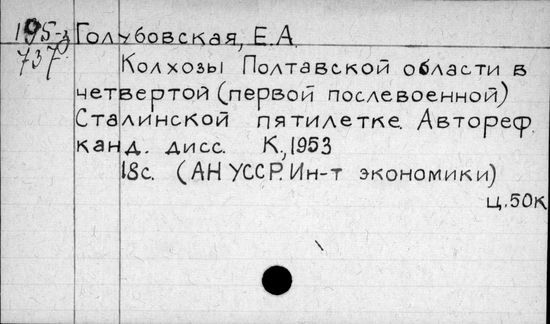 195-з Голубовская, Е.А.
737
Колхозы Полтавской области в
четвертой (первой послевоенной)
Сталинской пятилетке. Автореф.
канд. дисс. К., 1953
18с. (АН УССР. Ин-т экономики)
ц. 50к